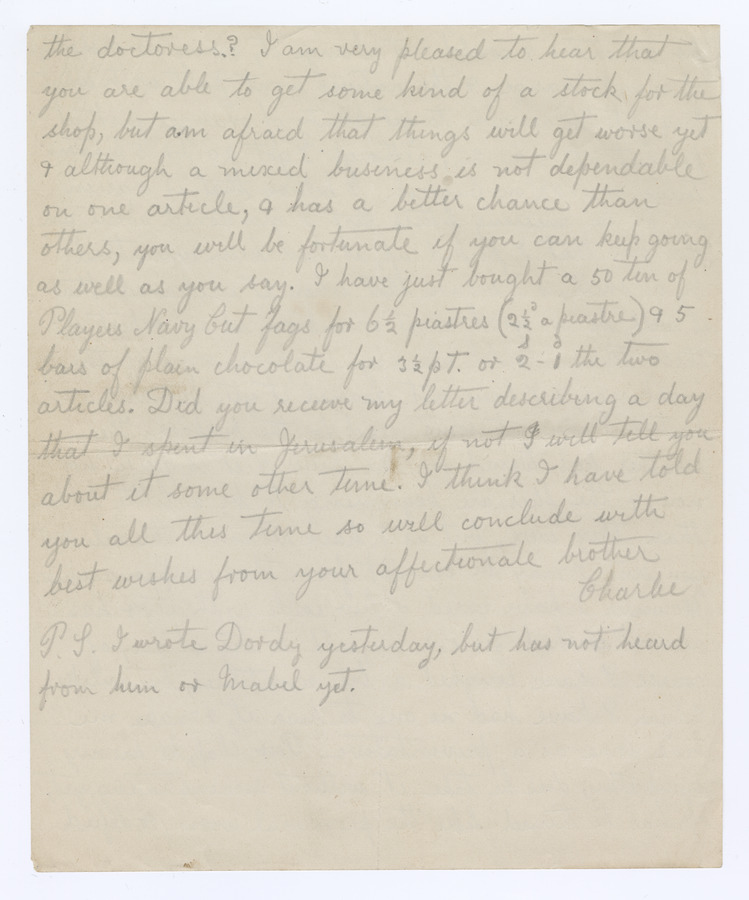 the doctoress.? I am very pleased to hear that
you are able to get some kind of a stock for the
shop, but am afraid that things will get worse yet
& although a mixed business is not dependable
on one article, & has a better chance than
others, you will be fortunate if you can keep going
as well as you say. I have just bought a 50 tin of
Players Navy Cut fags for 6½ piastres (2½ᴰ a piastre) & 5
bars of plain chocolate for 3½ p T. or 2ˢ - 1ᴰ the two
articles. Did you receive my letter describing a day
that I spent in Jerusalem, if not I will tell you
about it some other time. I think I have told
you all this time so will conclude with
best wishes from your affectionate brother
Charlie
P. S. I wrote Dordy yesterday, but has not heard
from him or Mabel yet.